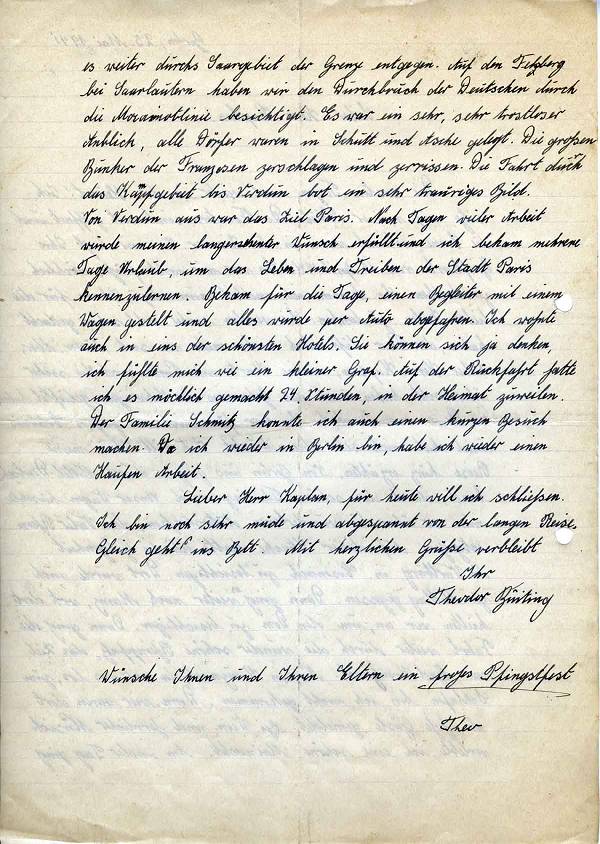 es weiter durchs Saargebiet der Grenze entgegen. Auf den Felzberg
bei Saarlautern haben wir den Durchbruch der Deutschen durch
die Maginotlinie besichtigt. Es war ein sehr, sehr trostloser
Anblick, alle Dörfer waren in Schutt und Asche gelegt. Die großen
Bunker der Franzosen zerschlagen und zerrissen. Die Fahrt durch
das Kampfgebiet bis Verdun bot ein sehr trauriges Bild.
Von Verdun aus war das Ziel Paris. Nach Tagen vieler Arbeit
wurde meinen langersehnter Wunsch erfüllt und ich bekam mehrere
Tage Urlaub, um das Leben und Treiben der Stadt Paris
kennenzulernen. Bekam für die Tage, einen Begleiter mit einem
Wagen gestelt und alles wurde per Auto abgefahren. Ich wohnte
auch in eins der schönsten Hotels. Sie können sich ja denken,
ich fühlte mich wie ein kleiner Graf. Auf der Rückfahrt hatte
ich es möchlich gemacht 24 Stunden, in der Heimat zuweilen.
Der Familie Schmitz konnte ich auch einen kurzen Besuch
machen. Da ich wieder in Berlin bin, habe ich wieder einen
Haufen Arbeit.
Lieber Herr Kaplan, für heute will ich schließen.
Ich bin noch sehr müde und abgespannt von der langen Reise.
Gleich geht's ins Bett. Mit herzlichen Grüße verbleibt
Ihr
Theodor Büiting
Wünsche Ihnen und Ihren Eltern ein frohes Pfingstfest
Theo